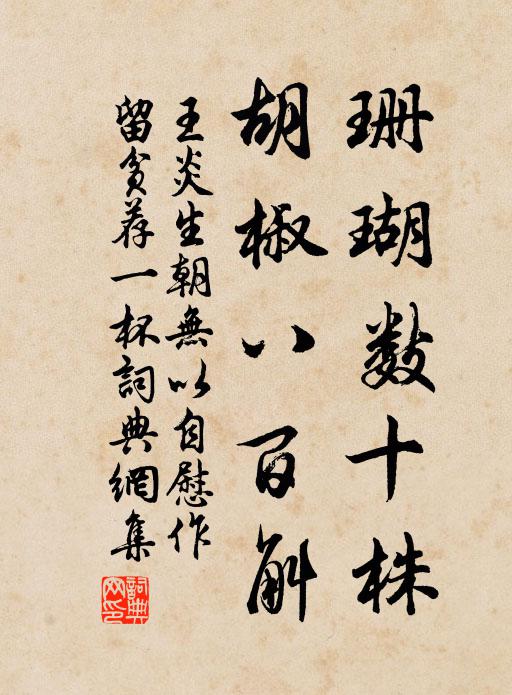 珊瑚数十株
胡椒八百斛
王炎生朝無以自慰作
留貧荐一杯詞典網集
詞典網印